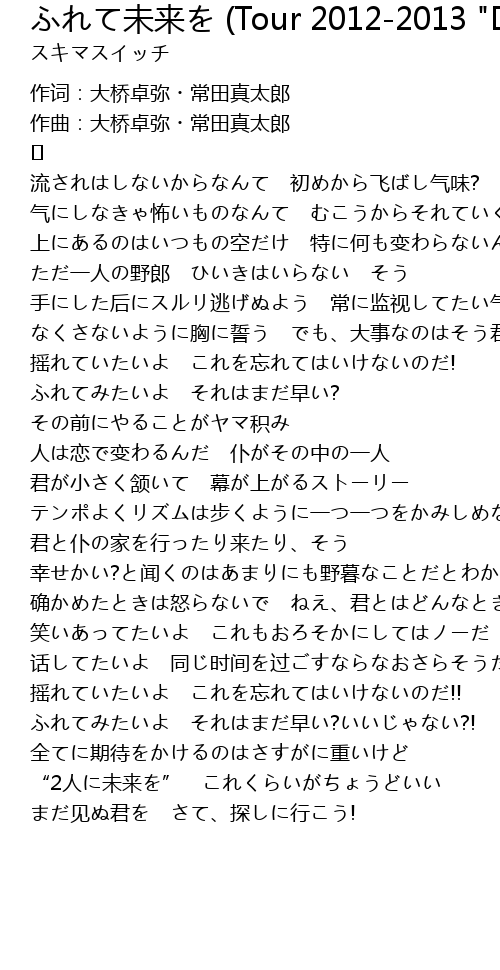 ふれて未来を (Tour 2012-2013 "D
スキマスイッチ
作词：大桥卓弥・常田真太郎
作曲：大桥卓弥・常田真太郎
[]
流されはしないからなんて　初めから飞ばし气味?
气にしなきゃ怖いものなんて　むこうからそれていく
上にあるのはいつもの空だけ　特に何も变わらないん
ただ一人の野郎　ひいきはいらない　そう
手にした后にスルリ逃げぬよう　常に监视してたい气
なくさないように胸に誓う　でも、大事なのはそう君
揺れていたいよ　これを忘れてはいけないのだ!
ふれてみたいよ　それはまだ早い?
その前にやることがヤマ积み
人は恋で变わるんだ　仆がその中の一人
君が小さく颔いて　幕が上がるストーリー
テンポよくリズムは步くように一つ一つをかみしめな
君と仆の家を行ったり来たり、そう
幸せかい?と闻くのはあまりにも野暮なことだとわか
确かめたときは怒らないで　ねえ、君とはどんなとき
笑いあってたいよ　これもおろそかにしてはノーだ
话してたいよ　同じ时间を过ごすならなおさらそうだ
揺れていたいよ　これを忘れてはいけないのだ!!
ふれてみたいよ　それはまだ早い?いいじゃない?!
全てに期待をかけるのはさすがに重いけど
“2人に未来を”　これくらいがちょうどいい
まだ见ぬ君を　さて、探しに行こう!